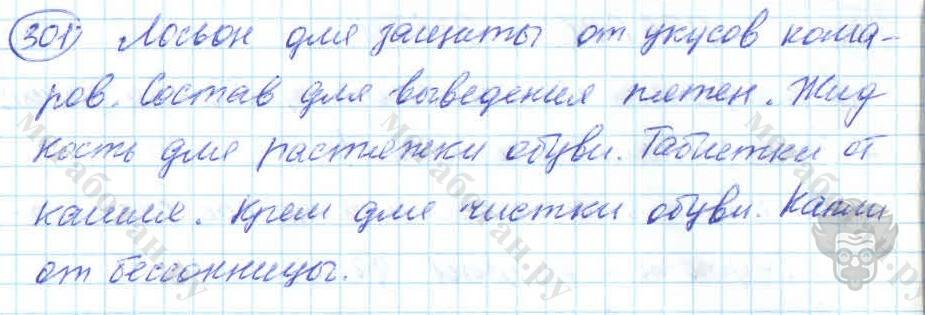 301) Лосьон для защиты от укусов кома-
ров. Состав для выведения пятен. Жид
кость для растяжки обуви. Таблетки от
кашля. Крем для чистки обуви. Капли
от бессонницы.